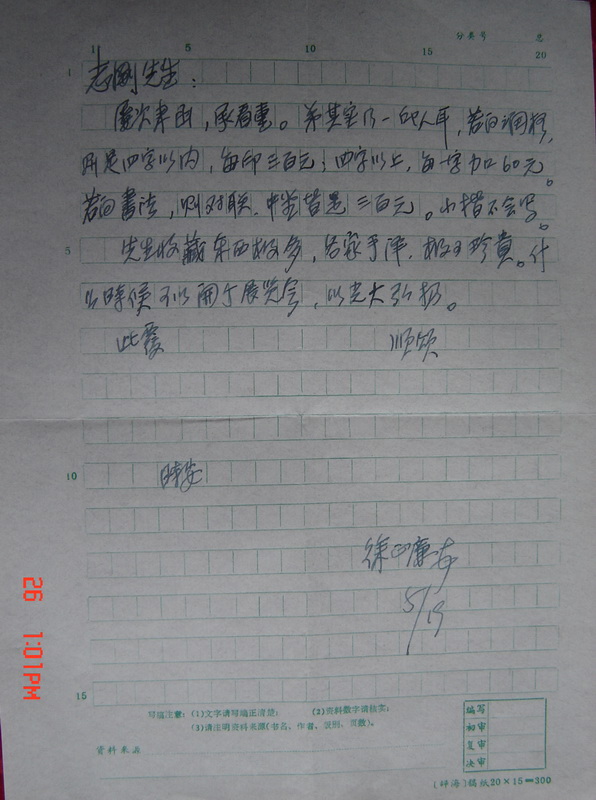 分类号 总
1 5 10 15 20
1
志刚先生：
屡次来函，承看重。弟其实乃一印人耳，若自调料，
则是四字以内，每印三百元；四字以上，每一字加60元。
若自书法，则对联、中堂皆是三百元。小楷不会写。
5
先生收藏东西极多，名家手泽，极可珍贵。什
么时候可以开个展览会，以光大弘扬。
此覆 顺颂
10
时安
徐
5/19
15
写稿注意：(1)文字请写端正清楚； (2)资料数字请核实；
(3)请注明资料来源(书名、作者、版别、页数)。
资料来源
编写
初审
复审
决审
(辞海)稿纸20×15=300
26 1:01PM